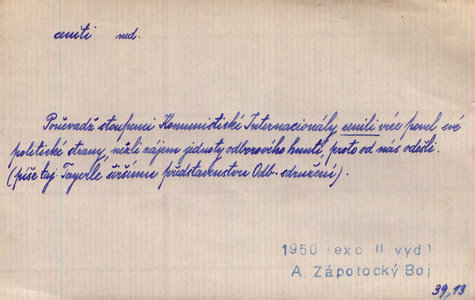 ceniti ned.
Poněvadž stoupenci Komunistické Internacionály cenili více povel své
politické strany, nežli zájem jednoty odborového hnutí, proto od nás odešli.
(píše taj. Tayerle širšímu představenstvu Odb. sdružení).
1950 (exc. II vyd)
A. Zápotocký Boj
39,13